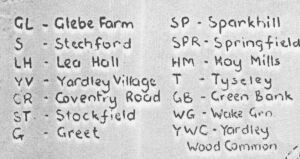 GL - Glebe Farm
S - Stechford
LH - Lea Hall
YV - Yardley Village
CR - Coventry Road
ST - Stockfield
G - Greet
SP - Sparkhill
SPR - Springfield
HM - Hay Mills
T - Tyseley
GB - Green Bank
WG - Wake Grn
YWC - Yardley
Wood Common